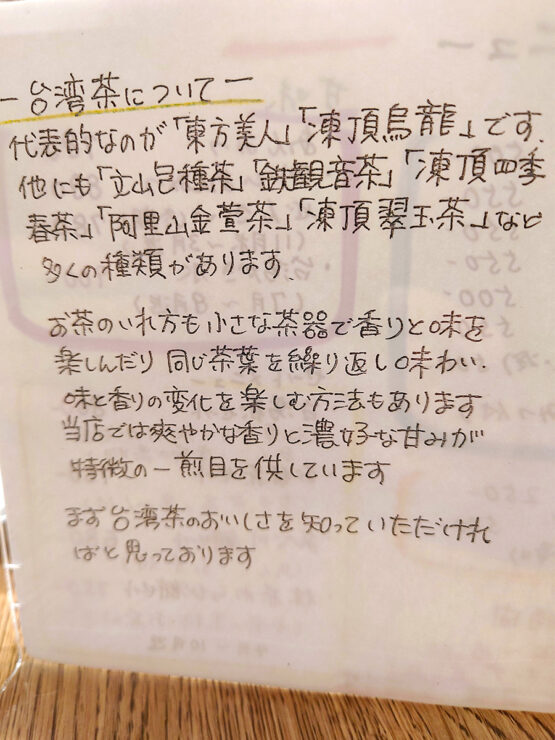 ー台湾茶についてー
代表的なのが「東方美人」「凍頂烏龍」です.
他にも「立山包種茶」「鉄観音茶」「凍頂四季
春茶」「阿里山金萱茶」「凍頂翠玉茶」など
多くの種類があります.
お茶のいれ方も小さな茶器で香りと味を
楽しんだり同じ茶葉を繰り返し味わい.
味と香りの変化を楽しむ方法もあります
当店では爽やかな香りと濃好な甘みが
特徴の一煎目を供しています
まず台湾茶のおいしさを知っていただけれ
ばと思っております